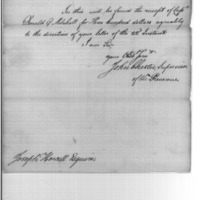 In this will be found the receipt of Capt
Donald G. Mitchell for Three hundred dollars agreeably
to the direction of your letter of the 22d Instant.
I am Sir
your Obed Servt
John Chester, Supervisor
of the Revenue
Joseph Howell Esquire